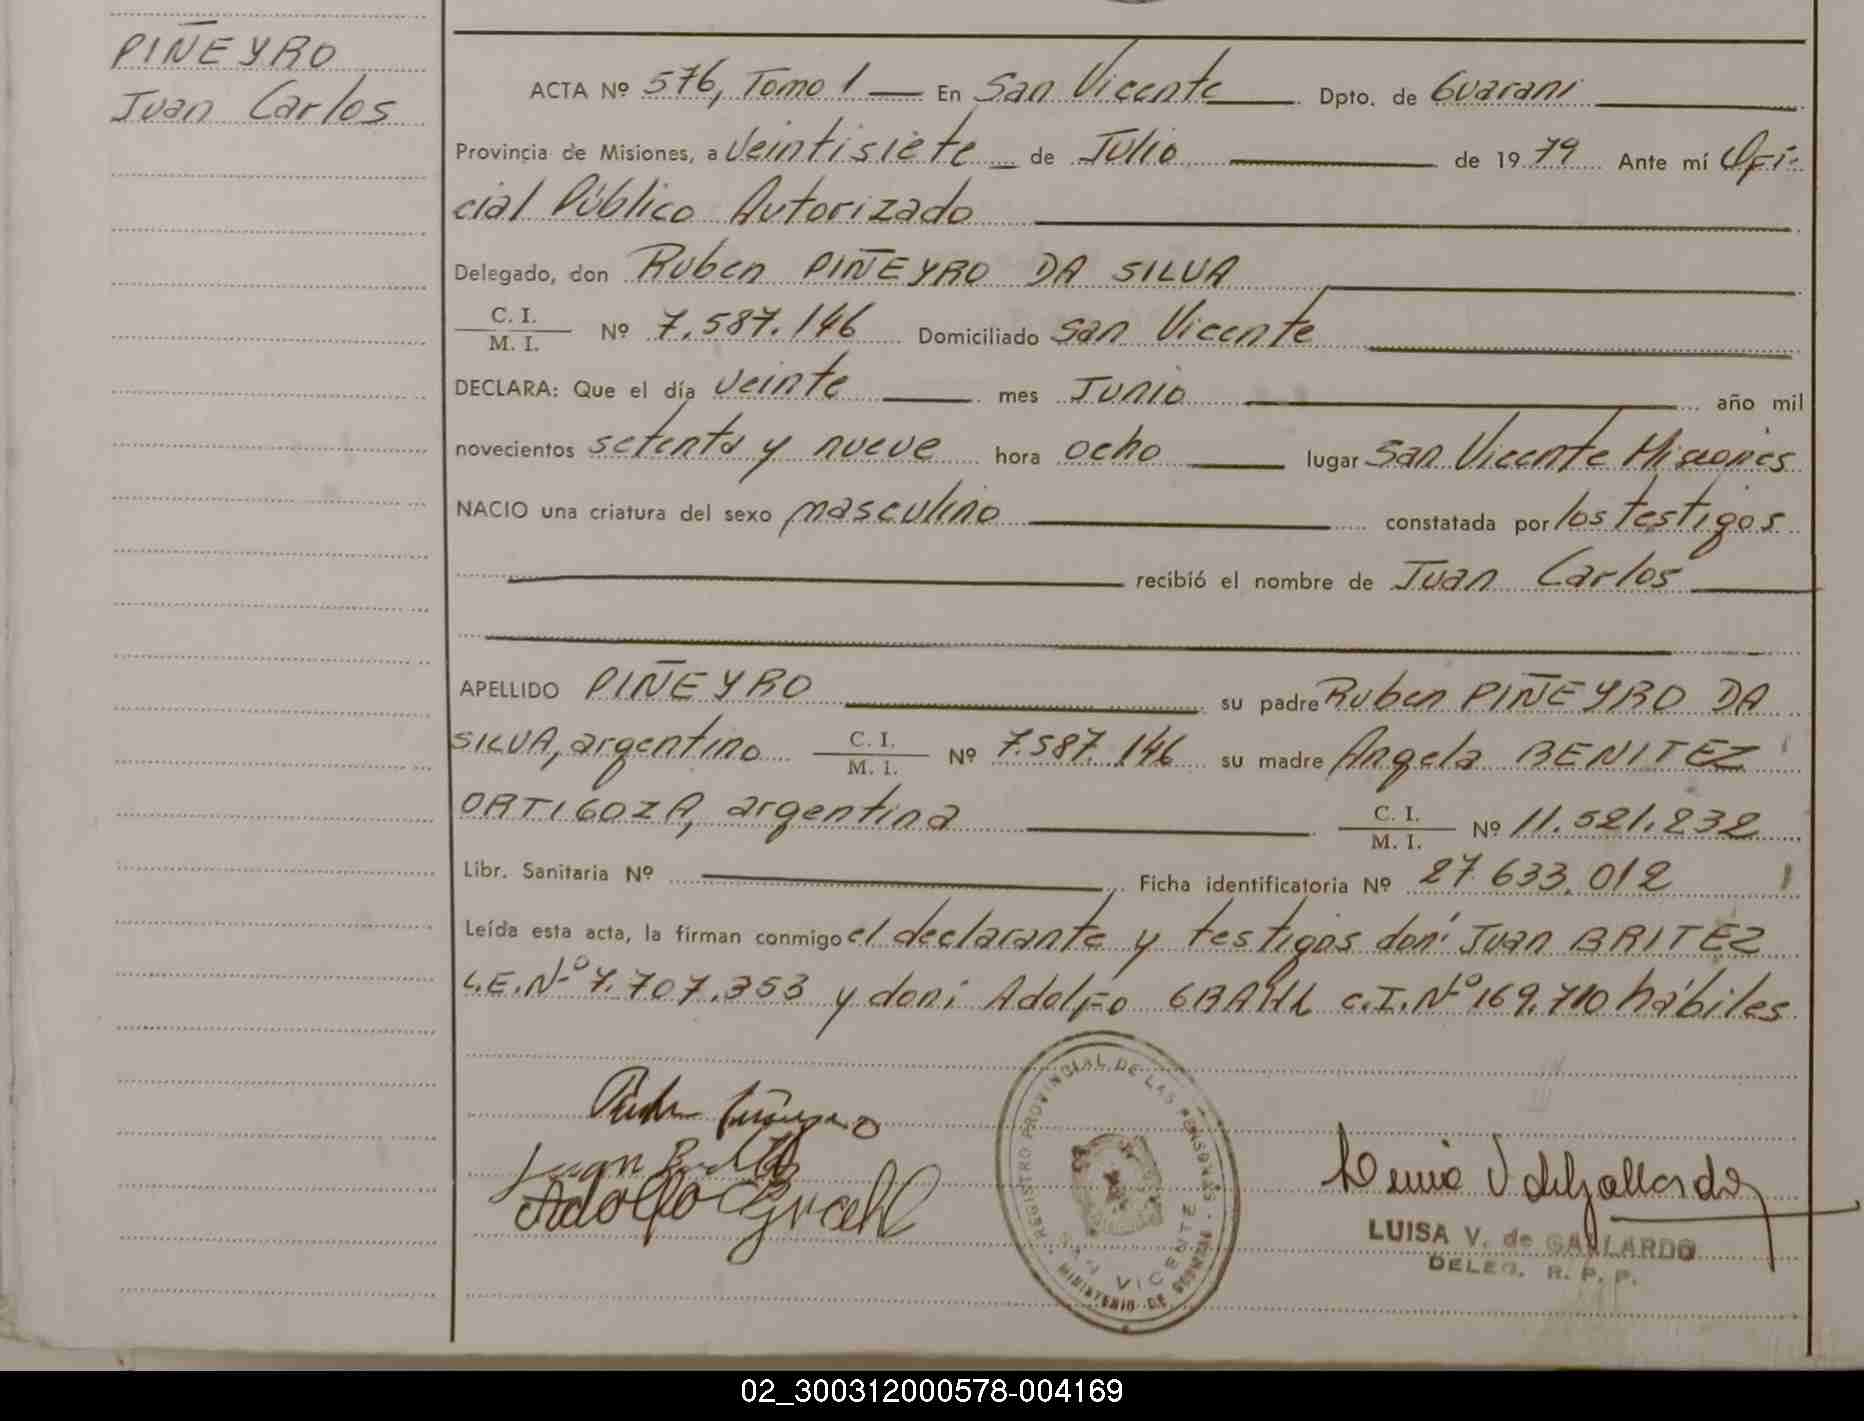 PIÑEYRO
Juan Carlos
ACTA Nº 576, Tomo 1 En San Vicente Dpto. de Guarani
Provincia de Misiones, a Veintisiete de Julio de 1979 Ante mí Ofi-
cial Público Autorizado
Delegado, don Ruben PIÑEYRO DA SILVA
C. I.
M. I. Nº 7.587.146 Domiciliado San Vicente
DECLARA: Que el día veinte mes Junio año mil
novecientos setenta y nueve hora ocho lugar San Vicente Misiones
NACIO una criatura del sexo masculino constatada por los testigos
recibió el nombre de Juan Carlos
APELLIDO PIÑEYRO su padre Ruben PIÑEYRO DA
SILVA, argentino C. I. M. I. Nº 7.587.146 su madre Angela BENITEZ
ORTIGOZA, argentina C. I. M. I. Nº 11.521.232
Libr. Sanitaria Nº Ficha identificatoria Nº 27.633.012
Leída esta acta, la firman conmigo el declarante y testigos don: Juan BRITEZ
L.E.Nº 7.707.353 y don: Adolfo GRAHL C.I.Nº 169.710 hábiles
REGISTRO PROVINCIAL DE LAS PERSONAS
SAN VICENTE
MINISTERIO DE GOBIERNO
Adolfo Grahl
LUISA V. de GALLARDO
DELEG. R. P. P.
02_300312000578-004169